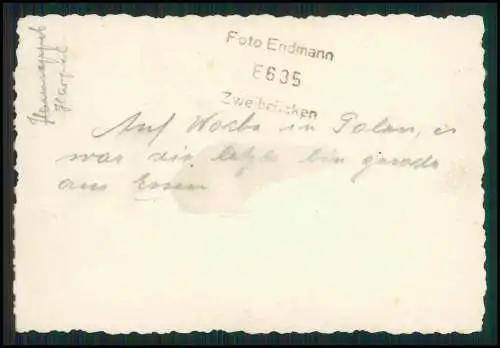 Foto Endmann
E635
Zweibrücken
Auf Wache in Polen, es
war die letzte bin gerade
am Essen